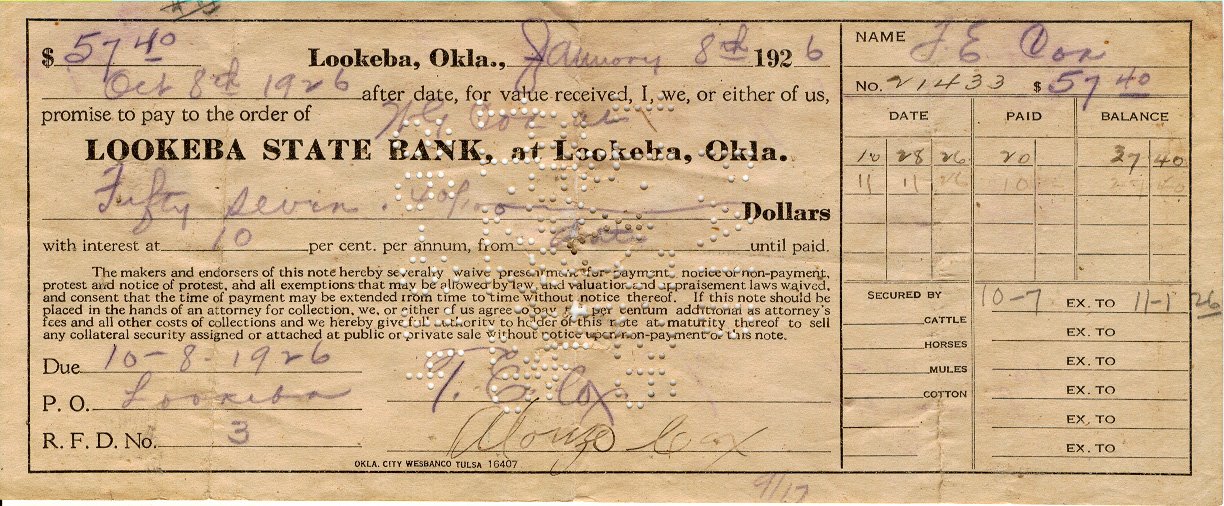 $ 57 40 Lookeba, Okla., January 8th 1926
Oct 8th 1926 after date, for value received, I, we, or either of us,
promise to pay to the order of
LOOKEBA STATE BANK, at Lookeba, Okla.
Fifty seven . 40/100 Dollars
with interest at 10 per cent. per annum, from date until paid.
The makers and endorsers of this note hereby severally waive presentment for payment, notice of non-payment,
protest and notice of protest, and all exemptions that may be allowed by law, and valuation and appraisement laws waived,
and consent that the time of payment may be extended from time to time without notice thereof. If this note should be
placed in the hands of an attorney for collection, we, or either of us agree to pay per centum additional as attorney's
fees and all other costs of collections and we hereby give full authority to holder of this note at maturity thereof to sell
any collateral security assigned or attached at public or private sale without notice upon non-payment of this note.
Due 10-8-1926
P. O. Lookeba
R. F. D. No. 3
T. E. Cox
Alonzo Cox
OKLA. CITY WESBANCO TULSA 16407
9/17
NAME T. E. Cox
No. 21433 $ 57 40
DATE PAID BALANCE
10 28 26 20 37 40
11 11 26 10 27 40
SECURED BY 10-7 EX. TO 11-1 26
CATTLE
EX. TO
HORSES
EX. TO
MULES
EX. TO
COTTON
EX. TO
EX. TO